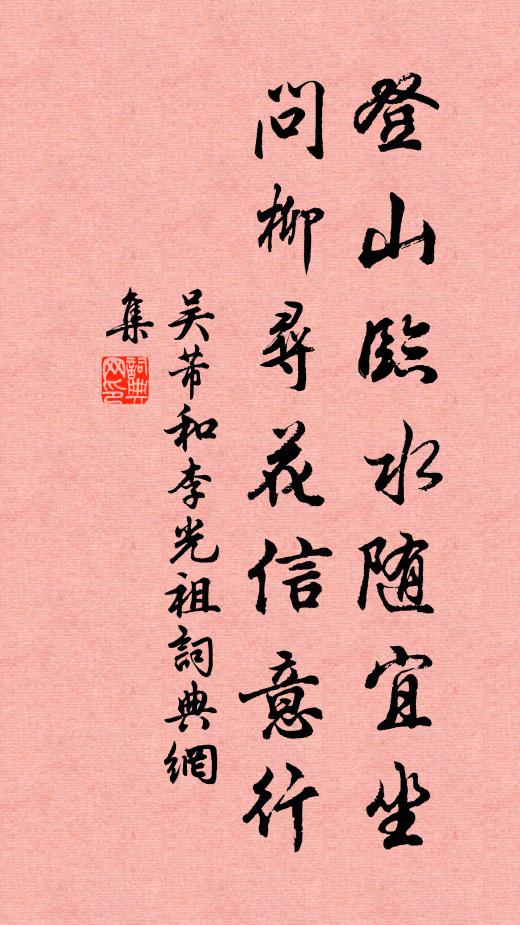 登山臨水随宜坐
問柳尋花信意行
吴芾和李光祖詞典網
集
詞典
网印